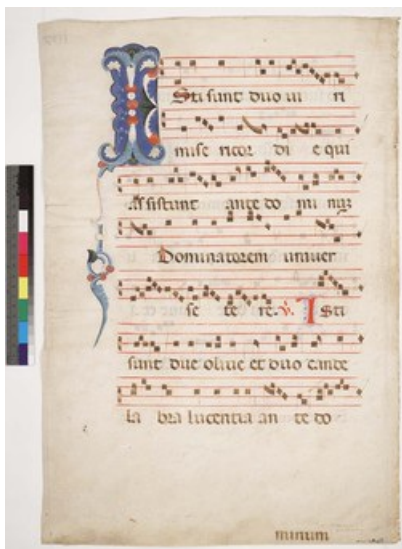 Isti sunt duo ui ri
mise ricor di e qui
assistunt ante do mi naz
Dominatorem univer
se te rre. V. Isti
sunt due oliue et duo cande
la bra lucentia an te do
minum